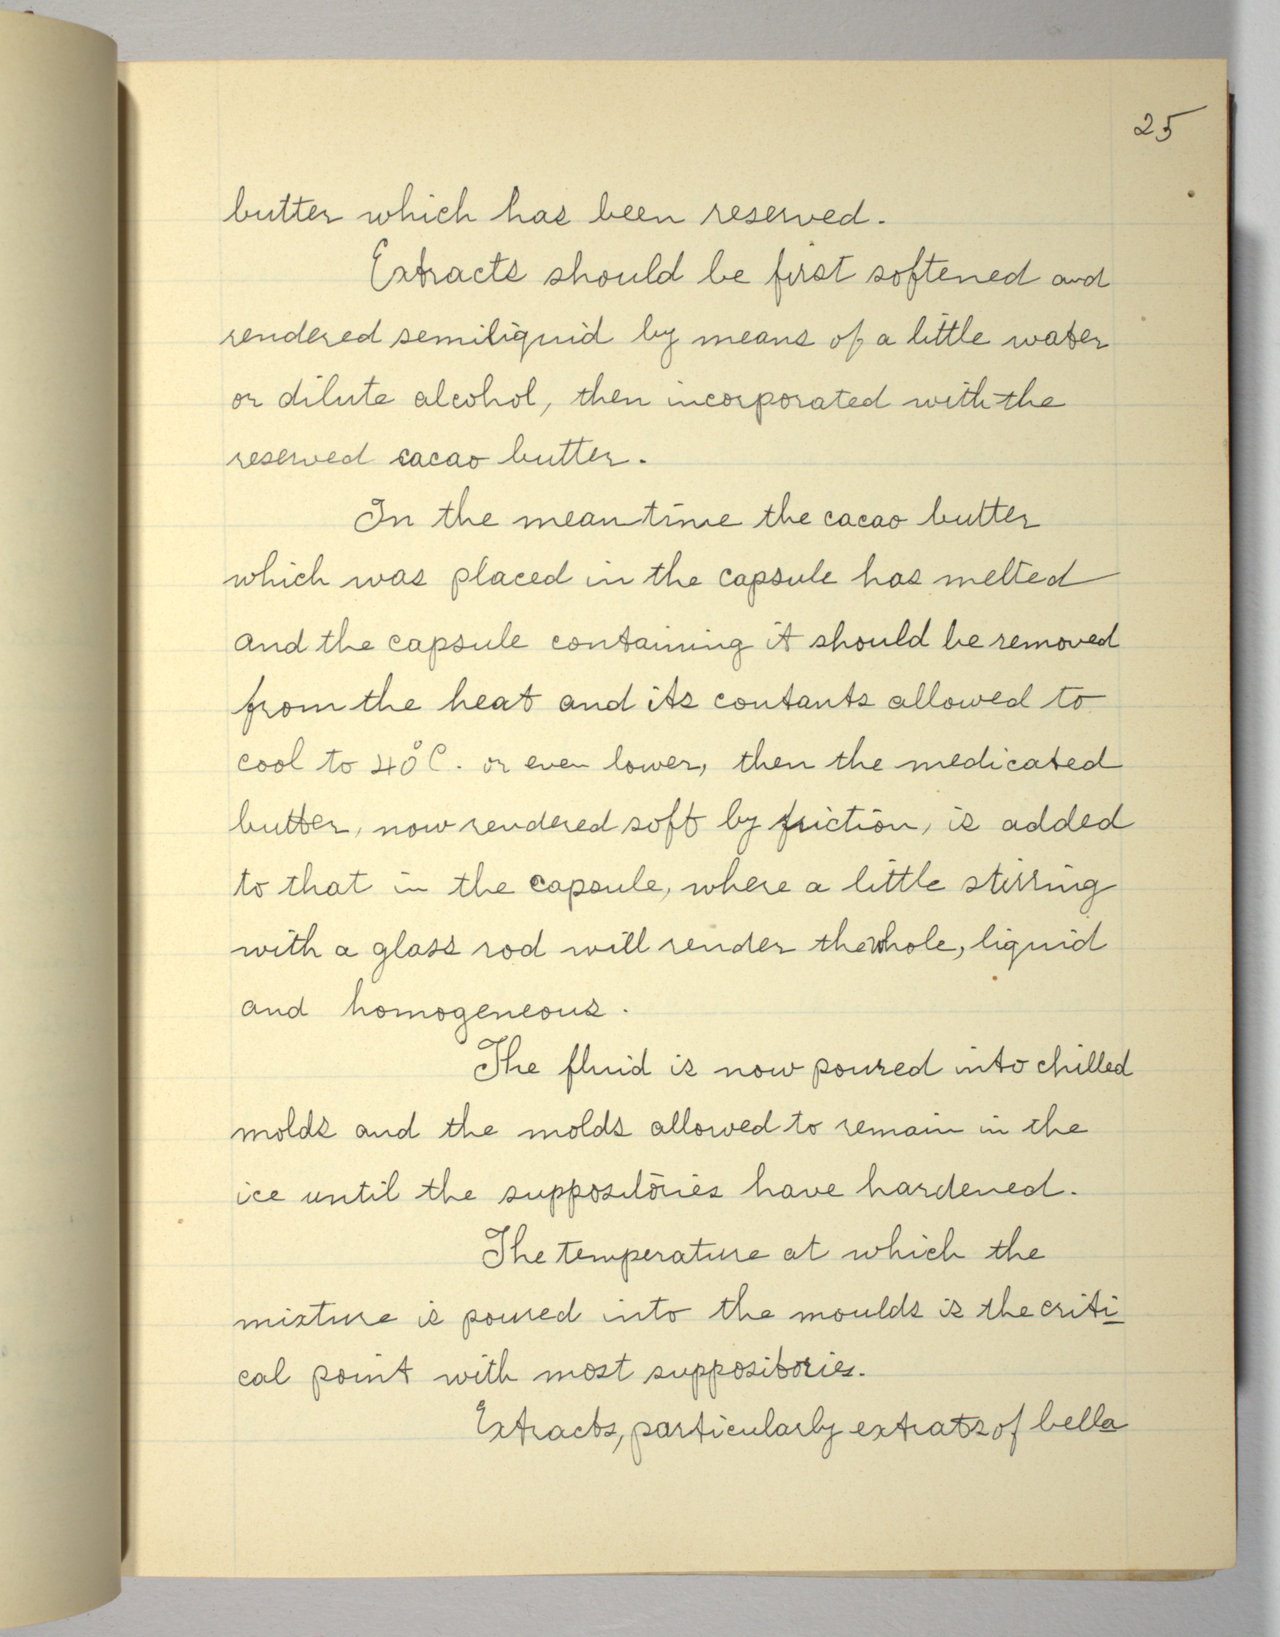 25
butter which has been reserved.
Extracts should be first softened and
rendered semiliquid by means of a little water
or dilute alcohol, then incorporated with the
reserved cacao butter.
In the meantime the cacao butter
which was placed in the capsule has melted
and the capsule containing it should be removed
from the heat and its contants allowed to
cool to 40°C. or even lower, then the medicated
butter, now rendered soft by friction, is added
to that in the capsule, where a little stirring
with a glass rod will render the whole, liquid
and homogeneous.
The fluid is now poured into chilled
molds and the molds allowed to remain in the
ice until the suppositories have hardened.
The temperature at which the
mixture is poured into the moulds is the criti
cal point with most suppositories.
Extracts, particularly extrats of bella